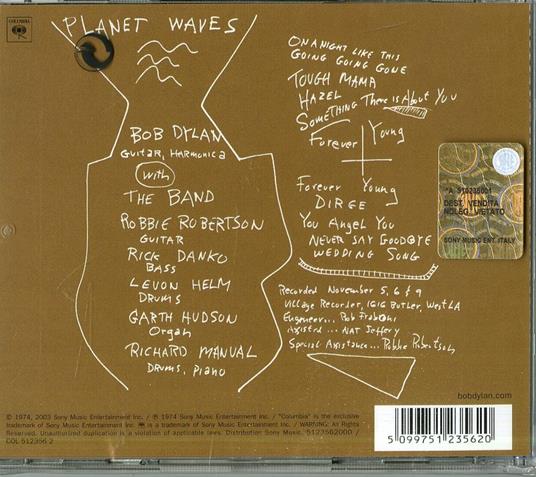 PLANET WAVES
COLUMBIA
BOB DYLAN
GUITAR, HARMONICA
with
THE BAND
ROBBIE ROBERTSON
GUITAR
RICK DANKO
BASS
LEVON HELM
DRUMS
GARTH HUDSON
Organ
RICHARD MANUAL
DRUMS, PIANO
ON A NIGHT LIKE THIS
GOING GOING GONE
TOUGH MAMA
HAZEL
SOMETHING There is About You
Forever Young
Forever Young
DIRGE
You Angel You
NEVER SAY GOODBYE
WEDDING SONG
Recorded November 5, 6 & 9
Village Recorder, 1616 Butler, West LA
Engineer... Rob Fraboni
Assisted... NAT Jeffery
Special Assistance... Robbie Robertson
DEST. VENDITA
NOLEG. VIETATO
SONY MUSIC ENT. ITALY
bobdylan.com
© 1974, 2003 Sony Music Entertainment Inc. / ℗ 1974 Sony Music Entertainment Inc. / "Columbia" is the exclusive
trademark of Sony Music Entertainment Inc. / is a trademark of Sony Music Entertainment Inc. / WARNING: All Rights
Reserved. Unauthorized duplication is a violation of applicable laws. Distribution Sony Music. 5123562000 /
COL 512356 2
5 099751 235620